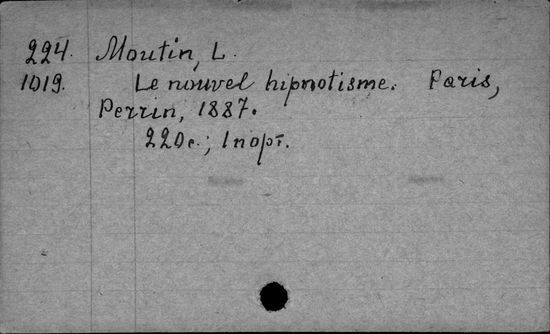 224. Moutin, L.
1019. Le nouvel hipnotisme. Paris,
Perrin, 1887.
220c.; 1 порт.